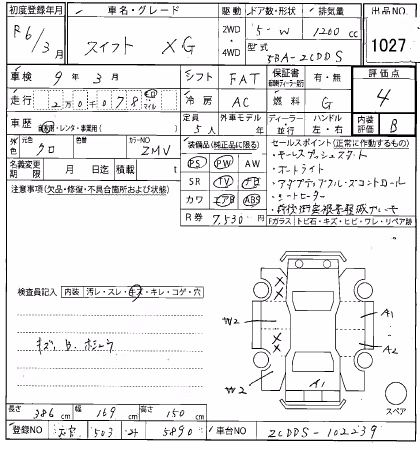 初度登録年月 車名・グレード 駆動 ドア数・形状 排気量 出品NO
R6/3月 スイフト XG 2WD・4WD 5-W 1200cc 1027
型式 5BA-ZCDDS
車検 9年 3月 シフト FAT 保証書 有・無 評価点 4
走行 2万0千078 マイル 冷房 AC 燃料 G
車歴 自家用・レンタ・事業用( ) 定員 5人 外車モデル 年 ディーラー 並行 ハンドル 左・右 内装評価 B
外色 元色 クロ 色替 カラーNO ZMV
名義変更期限 月 日迄 積載 t
装備品(純正品に限る)
PS PW AW
SR TV ナビ
カワ エアB ABS
R券 7,530円
セールスポイント(正常に作動するもの)
・キーレスプッシュスタート
・オートライト
・アダプティブクルーズコントロール
・シートヒーター
Fガラス トビ石・キズ・ヒビ・ワレ・リペア跡
注意事項(欠品・修復・不具合箇所および状態)
検査員記入 内装 汚レ・スレ・キズ・キレ・コゲ・穴
W2
W2
A1
A2
A1
スペア
長さ 386cm 幅 169cm 高さ 150cm
登録NO 503 5890 車台NO ZCDDS-102239